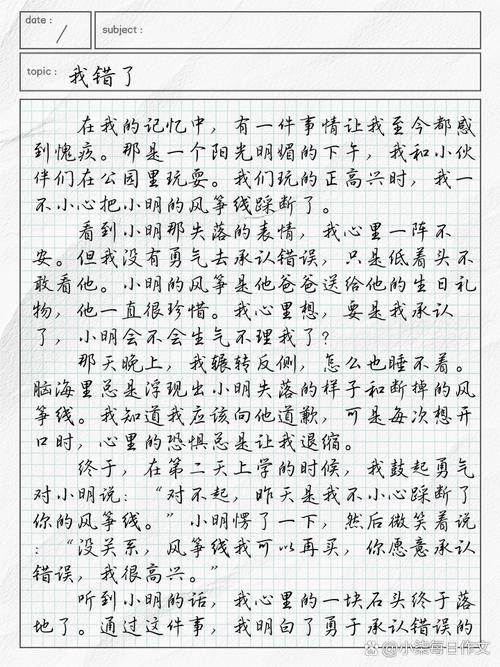 date :
subject :
topic : 我错了
在我的记忆中，有一件事情让我至今都感
到愧疚。那是一个阳光明媚的下午，我和小伙
伴们在公园里玩耍。我们玩的正高兴时，我一
不小心把小明的风筝线踩断了。
看到小明那失落的表情，我心里一阵不
安。但我没有勇气去承认错误，只是低着头不
敢看他。小明的风筝是他爸爸送给他的生日礼
物，他一直很珍惜。我心里想，要是我承认
了，小明会不会生气不理我了？
那天晚上，我辗转反侧，怎么也睡不着。
脑海里总是浮现出小明失落的样子和断掉的风
筝线。我知道我应该向他道歉，可是每次想开
口时，心里的恐惧总是让我退缩。
终于，在第二天上学的时候，我鼓起勇气
对小明说：“对不起，昨天是我不小心踩断了
你的风筝线。”小明愣了一下，然后微笑着说
：“没关系，风筝线我可以再买，你愿意承认
错误，我很高兴。”
听到小明的话，我心里的一块石头终于落
地了。通过这件事，我明白了勇于承认错误的
@小柒每日作文